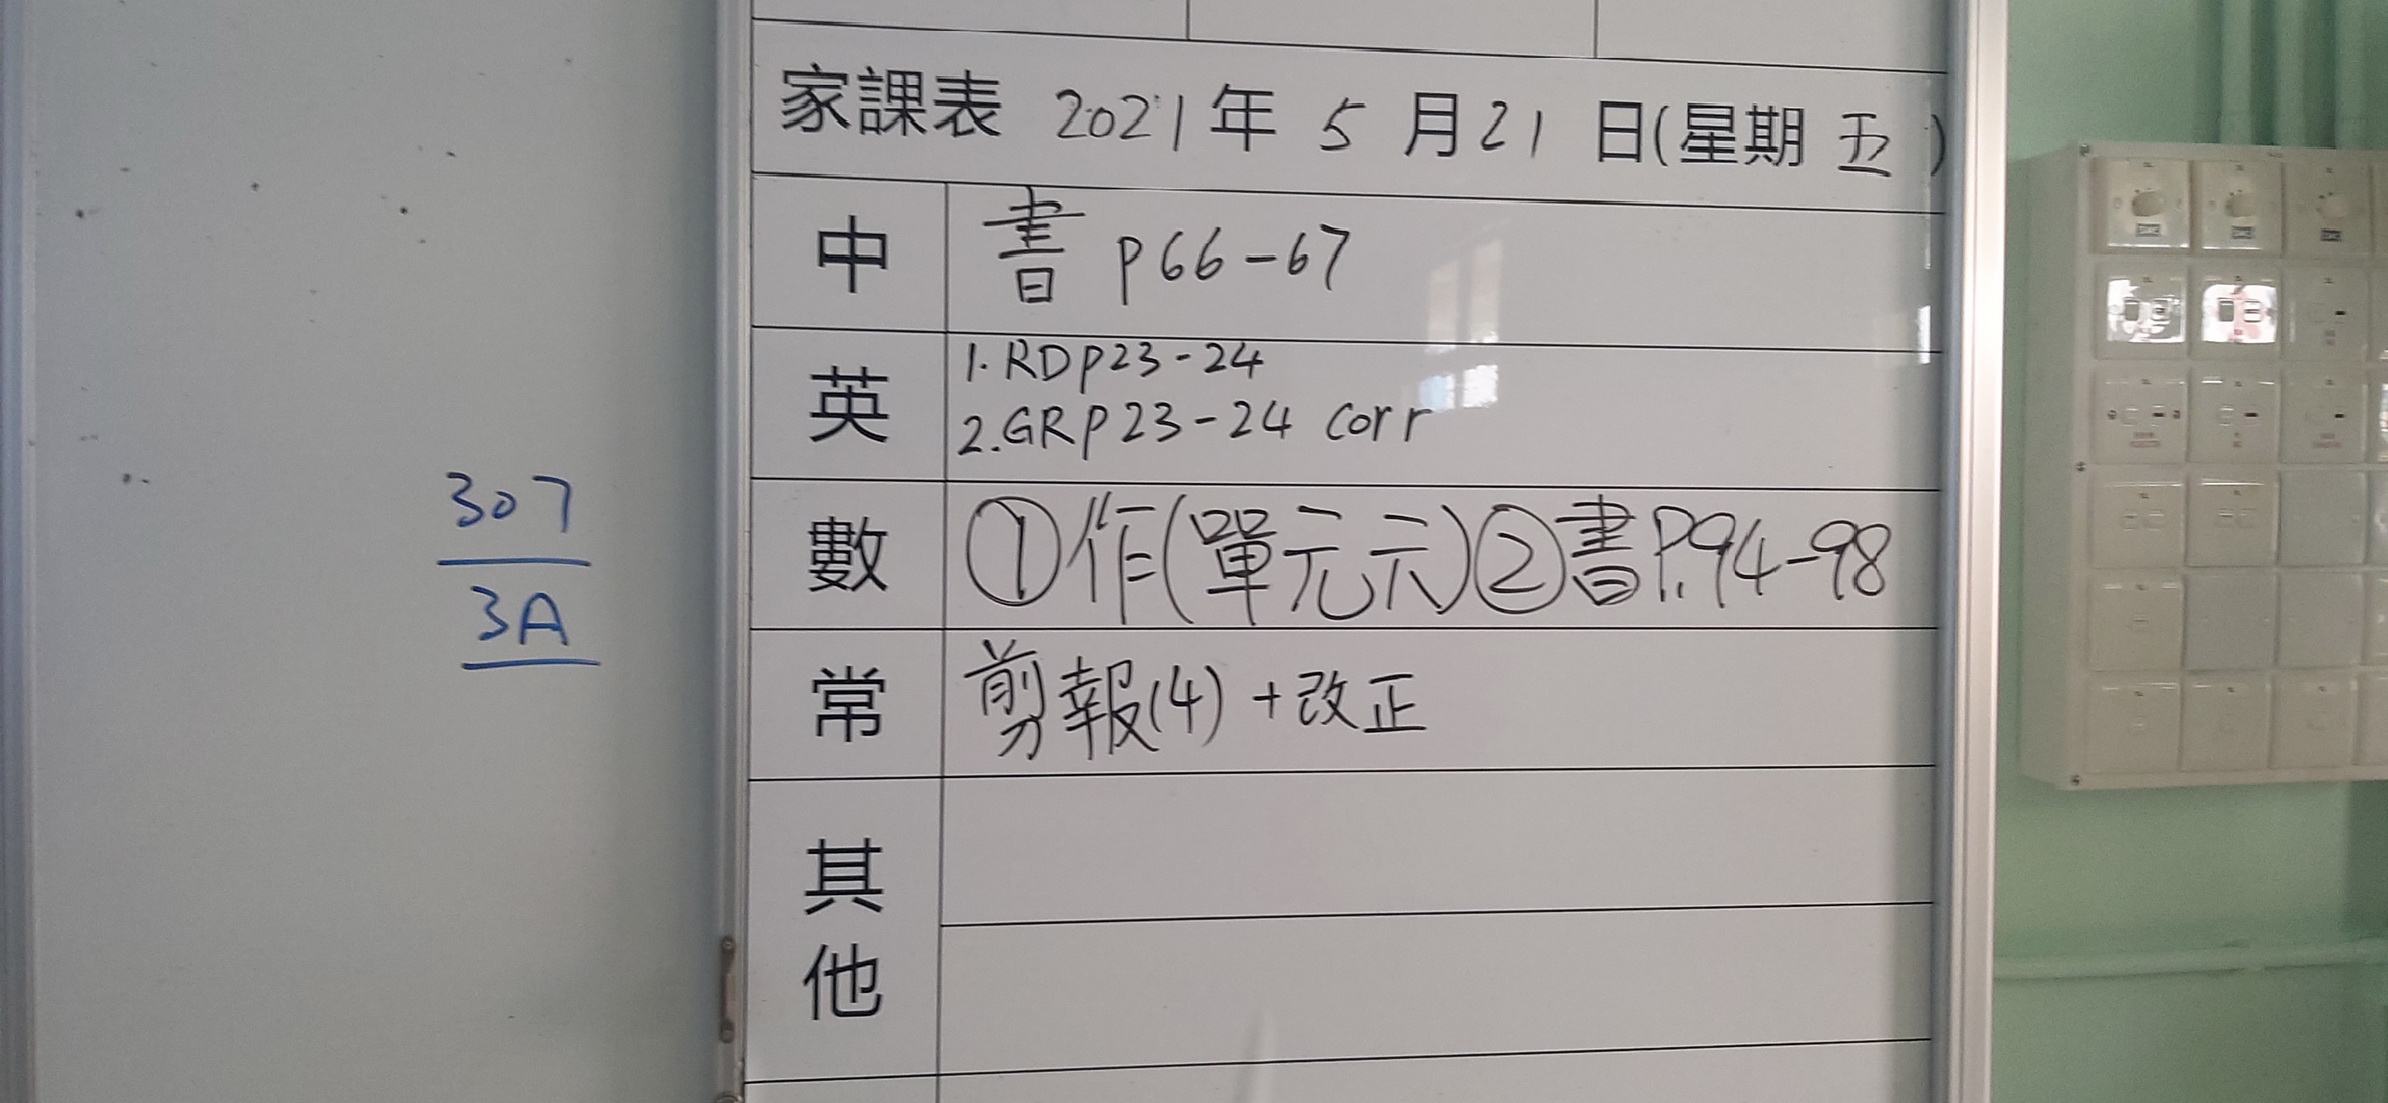 307
3A
家課表 2021年 5 月21 日(星期 五 )
中 書 p66-67
英 1. RD p23-24
2. GR p23-24 corr
數 ①作(單元示)②書P.94-98
常 剪報(4) +改正
其他